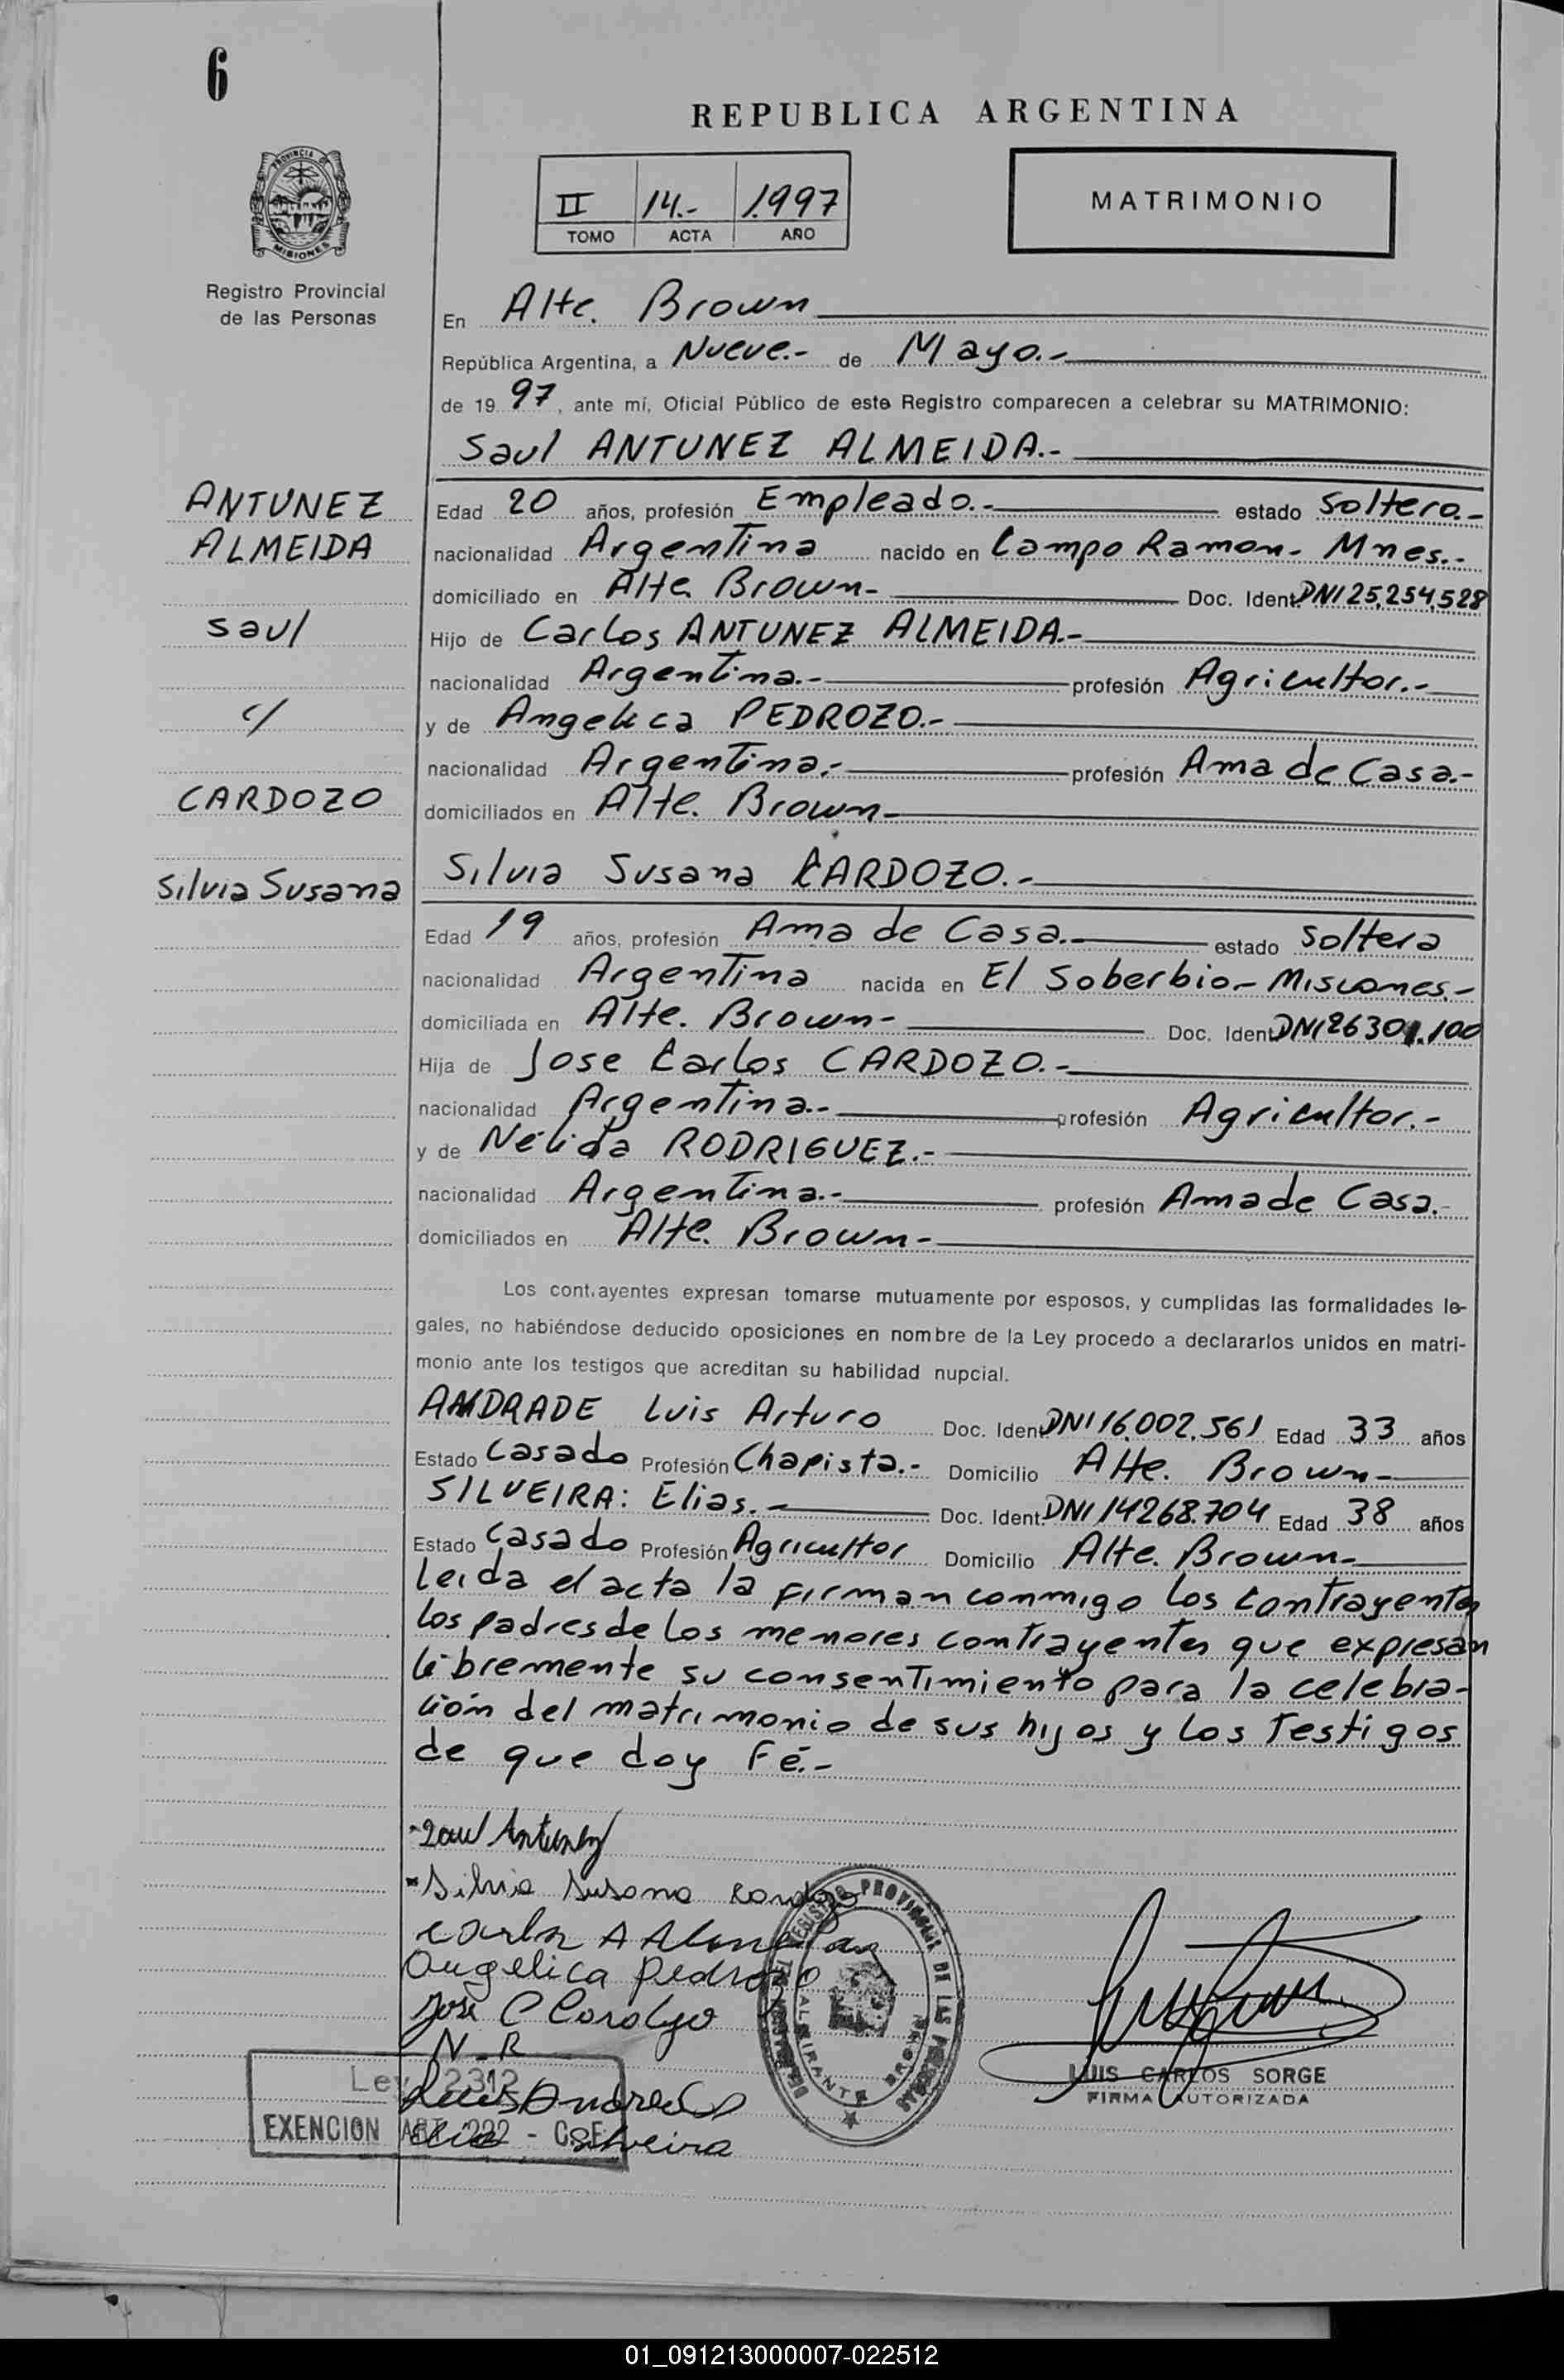 6
REPUBLICA ARGENTINA
PROVINCIA DE
MISIONES
II 14.- 1.997
TOMO ACTA AÑO
MATRIMONIO
Registro Provincial
de las Personas
En Alte. Brown
República Argentina, a Nueve.- de Mayo.-
de 19 97, ante mí, Oficial Público de este Registro comparecen a celebrar su MATRIMONIO:
Saul ANTUNEZ ALMEIDA.-
ANTUNEZ
ALMEIDA
Saul
c/
CARDOZO
Silvia Susana
Edad 20 años, profesión Empleado.- estado Soltero.-
nacionalidad Argentina nacido en Campo Ramon- Mnes.-
domiciliado en Alte. Brown- Doc. Ident. DNI 25.254.528
Hijo de Carlos ANTUNEZ ALMEIDA.-
nacionalidad Argentina.- profesión Agricultor.-
y de Angelica PEDROZO.-
nacionalidad Argentina.- profesión Ama de Casa.-
domiciliados en Alte. Brown-
Silvia Susana CARDOZO.-
Edad 19 años, profesión Ama de Casa.- estado Soltera
nacionalidad Argentina nacida en El Soberbio- Misiones.-
domiciliada en Alte. Brown- Doc. Ident. DNI 26301.100
Hija de Jose Carlos CARDOZO.-
nacionalidad Argentina.- profesión Agricultor.-
y de Nélida RODRIGUEZ.-
nacionalidad Argentina.- profesión Ama de Casa.-
domiciliados en Alte. Brown-
Los contrayentes expresan tomarse mutuamente por esposos, y cumplidas las formalidades le-
gales, no habiéndose deducido oposiciones en nombre de la Ley procedo a declararlos unidos en matri-
monio ante los testigos que acreditan su habilidad nupcial.
ANDRADE Luis Arturo Doc. Ident. DNI 16.002.561 Edad 33 años
Estado Casado Profesión Chapista.- Domicilio Alte. Brown-
SILVEIRA: Elias.- Doc. Ident. DNI 14268.704 Edad 38 años
Estado Casado Profesión Agricultor Domicilio Alte. Brown-
Leida el acta la firman conmigo los contrayentes
los padres de los menores contrayentes que expresan
libremente su consentimiento para la celebra-
ción del matrimonio de sus hijos y los Testigos
de que doy Fé.-
Saul Antunez
Silvia Susana Cardozo
Carlos A Almeida
Angelica Pedrozo
Jose C Cardozo
N-R
Luis Andrade
Elias Silveira
REGISTRO PROVINCIAL DE LAS PERSONAS
ALMIRANTE BROWN
Ley 2312
EXENCION ART 222 - C.F.
LUIS CARLOS SORGE
FIRMA AUTORIZADA
01_091213000007-022512